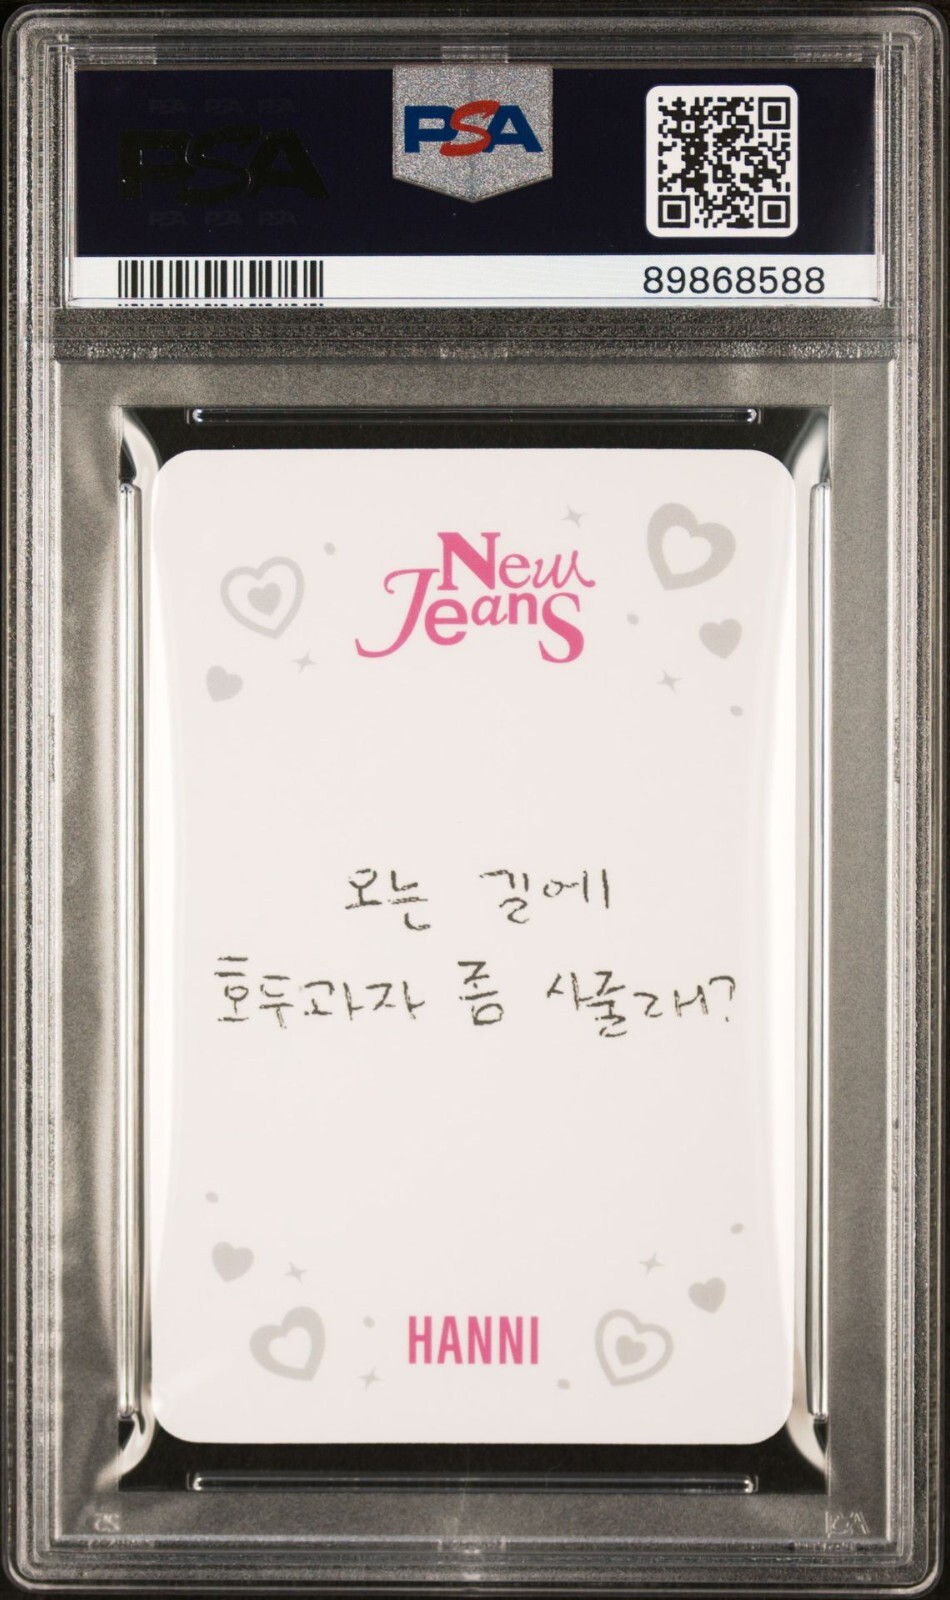 PSA
89868588
New
Jeans
오는 길에
호두과자 좀 사줄래?
HANNI